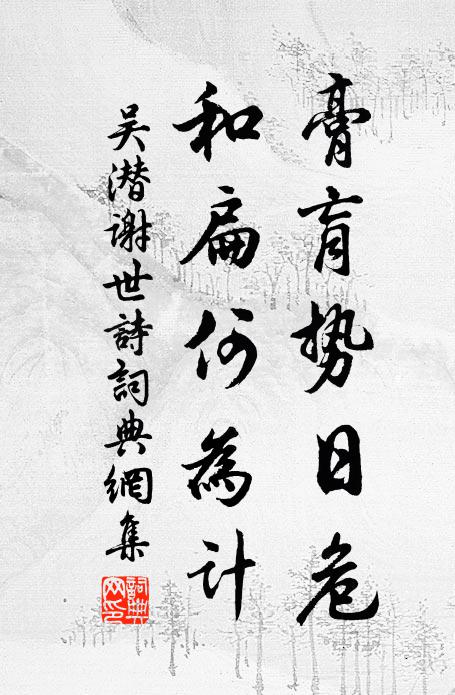 膏肓势日危
和扁何為计
吴潜谢世詩詞典網集